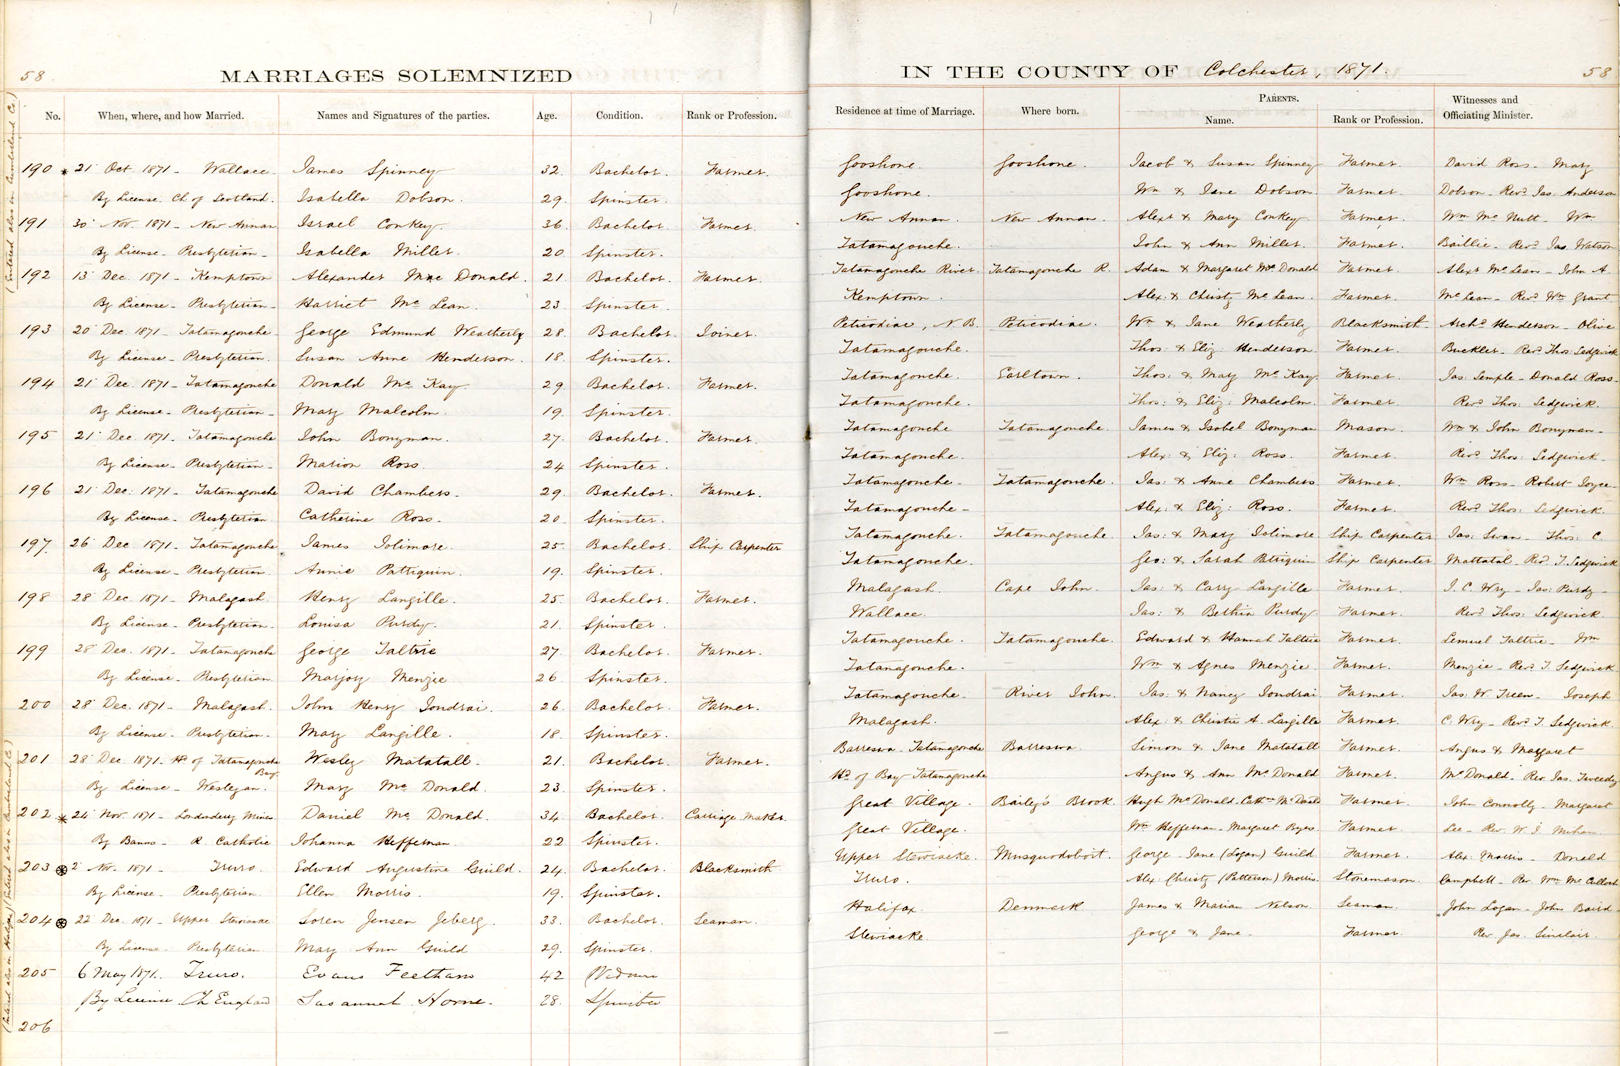 58
MARRIAGES SOLEMNIZED
No. When, where, and how Married. Names and Signatures of the parties. Age. Condition. Rank or Profession.
(Entered also in Cumberland Co.)
190 * 21 Oct 1871 - Wallace James Spinney 32. Bachelor. Farmer.
By License Ch of Scotland. Isabella Dobson. 29. Spinster.
191 30 Nov. 1871 - New Annan Israel Conkey. 36. Bachelor. Farmer.
By License - Presbyterian - Isabella Miller. 20. Spinster.
192 13 Dec. 1871 - Kemptown Alexander Mac Donald. 21. Bachelor. Farmer.
By License - Presbyterian - Harriet Mc Lean. 23. Spinster.
193 20 Dec. 1871 - Tatamagouche George Edmund Weatherby 28. Bachelor. Joiner.
By License - Presbyterian. Susan Anne Henderson. 18. Spinster.
194 21 Dec. 1871 - Tatamagouche Donald Mc Kay. 29. Bachelor. Farmer.
By License - Presbyterian - Mary Malcolm. 19. Spinster.
195 21 Dec. 1871 - Tatamagouche John Bonyman. 27. Bachelor. Farmer.
By License - Presbyterian - Marion Ross. 24 Spinster.
196 21 Dec. 1871 - Tatamagouche David Chambers. 29. Bachelor. Farmer.
By License - Presbyterian Catherine Ross. 20. Spinster.
197. 26 Dec 1871 - Tatamagouche. James 25. Bachelor Ship Carpenter
By License - Presbyterian. Annie Pattiquin. 19. Spinster.
198 28 Dec. 1871 - Malagash. Henry Langille. 25. Bachelor. Farmer.
By License - Presbyterian. Louisa Purdy. 21. Spinster.
199 28 Dec. 1871 - Tatamagouche George Taltrie 27. Bachelor. Farmer.
By License - Presbyterian. Marjory Menzie 26. Spinster.
200 28 Dec. 1871 - Malagash. John Henry Jondrai. 26. Bachelor. Farmer.
By License - Presbyterian. Mary Langille. 18. Spinster.
201 28 Dec. 1871 - Hd of Tatamagouche Bay. Wesley Matatall. 21. Bachelor. Farmer.
By License - Wesleyan. Mary Mc Donald. 23. Spinster.
202 * 24 Nov. 1871 - Londonderry Mines Daniel Mc Donald. 34. Bachelor. Carriage Maker.
By Banns - R. Catholic Johanna Heffernan. 22 Spinster.
203 2 Nov. 1871 - Truro. Edward Augustine Guild. 24. Bachelor. Blacksmith
By License - Presbyterian Ellen Morris. 19. Spinster.
204 22 Dec. 1871 - Upper Stewiacke Soren Jensen Jeberg. 33. Bachelor. Seaman.
By License - Presbyterian Mary Ann Guild 29. Spinster.
205 6 May 1871. Truro. Evans Feetham 42
By License Ch England Susannah Horne. 28. Spinster
206
IN THE COUNTY OF Colchester, 1871.
58
Residence at time of Marriage. Where born. PARENTS. Name. Rank or Profession. Witnesses and Officiating Minister.
Gooshone. Gooshone. Jacob & Susan Spinney Farmer. David Ross - Mary
Gooshone. Wm & Jane Dobson. Farmer. Dobson - Revd Jas. Anderson
New Annan. New Annan. Alexr & Mary Conkey. Farmer. Wm Mc Nutt - Wm
Tatamagouche. John & Ann Miller. Farmer. Baillie - Revd Jas Watson
Tatamagouche River. Tatamagouche R. Adam & Margaret Mc Donald Farmer. Alexr McLean - John A.
Kemptown. Alex: & Christy Mc Lean. Farmer. McLean - Revd Wm Grant.
Peticodiac, N.B. Peticodiac. Wm & Jane Weatherby Blacksmith Archd Henderson - Olive
Tatamagouche. Thos: & Eliz: Henderson Farmer. Buckler - Revd Thos: Sedgwick
Tatamagouche. Earltown. Thos: & Mary Mc Kay. Farmer. Jas: Semple - Donald Ross -
Tatamagouche. Thos: & Eliz: Malcolm. Farmer. Revd Thos: Sedgwick.
Tatamagouche Tatamagouche. James & Isobel Bonyman Mason. Wm & John Bonyman -
Tatamagouche. Alex: & Eliz: Ross. Farmer. Revd Thos: Sedgwick.
Tatamagouche - Tatamagouche. Jas: & Anne Chambers Farmer. Wm Ross - Robert Joyce -
Tatamagouche - Alex: & Eliz: Ross. Farmer. Revd Thos: Sedgwick.
Tatamagouche. Tatamagouche. Jas: & Mary Ship Carpenter Jas: Swan - Thos: C.
Tatamagouche. Geo: & Sarah Pattiquin Ship Carpenter Mattatal - Revd T. Sedgwick
Malagash. Cape John. Jas: & Cary Langille Farmer. J. C. Wry - Jas: Purdy -
Wallace. Jas: & Bethia Purdy. Farmer. Revd Thos: Sedgwick.
Tatamagouche. Tatamagouche. Edward & Hannah Taltrie Farmer. Lemuel Taltrie - Wm
Tatamagouche. Wm & Agnes Menzie Farmer. Menzie - Revd T. Sedgwick
Tatamagouche. River John. Jas: & Nancy Jondrai. Farmer. Jas: W. Treen - Joseph
Malagash. Alex: & Christie A. Langille Farmer. C. Wry - Revd T. Sedgwick.
Tatamagouche Simon & Jane Matatall Farmer. Angus & Margaret
Hd of Bay Tatamagouche Angus & Ann McDonald Farmer. McDonald - Rev. Jas. Tweedy
Great Village. Bailey's Brook. Hugh McDonald. McDonald Farmer. John Connolly - Margaret
Great Village. Wm Heffernan - Margaret Farmer. Lee - Rev. W. J.
Upper Stewiacke. Musquodoboit. George - Jane (Logan) Guild Farmer. Alex: Morris - Donald
Truro. Alex: Christy (Patterson) Morris. Stonemason. Campbell - Rev. Wm McCulloch
Halifax. Denmark James & Marian Nelson. Seaman. John Logan - John Baird -
Stewiacke. George & Jane. Farmer. Rev. Jas. Sinclair.